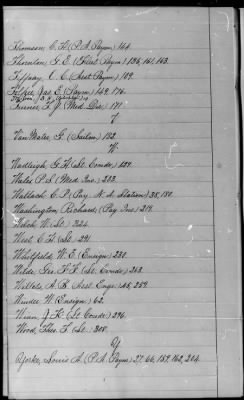 Thomson, C. H. (P. A. Paym) 164.
Thornton, G. E. (Asst Paym) 136, 161, 163.
Tiffany, O. C. (Asst Paym) 109.
Tolfree, Jas E. (Paym) 149, 176.
Turner, T. J. (Med. Dir.) 171.
V
Van Mater, J. (Sailm.) 152.
W.
Wadleigh, G. H. (Lt. Comdr.) 129.
Wales, P. S. (Med. Ins.) 233.
Wallach, C. P. (Pay. N. A. Station) 35, 180.
Washington, Richard, (Pay Ins.) 219.
Welch, W. (Lt.) 324.
West, C. H. (Lt.) 291.
Whitfield, W. E. (Ensign) 230.
Wilde, Geo. F. F. (Lt. Comdr.) 263.
Willits, A. B. (Asst. Engr.) 45, 259.
Winder, W. (Ensign) 62.
Winn, J. K. (Lt. Comdr.) 296.
Wood, Theo. T. (Lt.) 308.
Y
Yorke, Louis A. (P. A. Paym) 27, 66, 159, 162, 204.